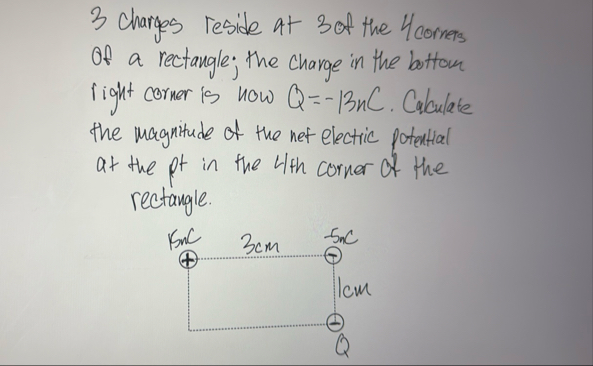 3 Charges reside at 3 of the 4 corners
of a rectangle; the charge in the bottom
right corner is now Q=-13nC. Calculate
the magnitude of the net electric potential
at the pt in the 4th corner of the
rectangle.
15nC 3cm -5nC
+ -
1cm
-
Q